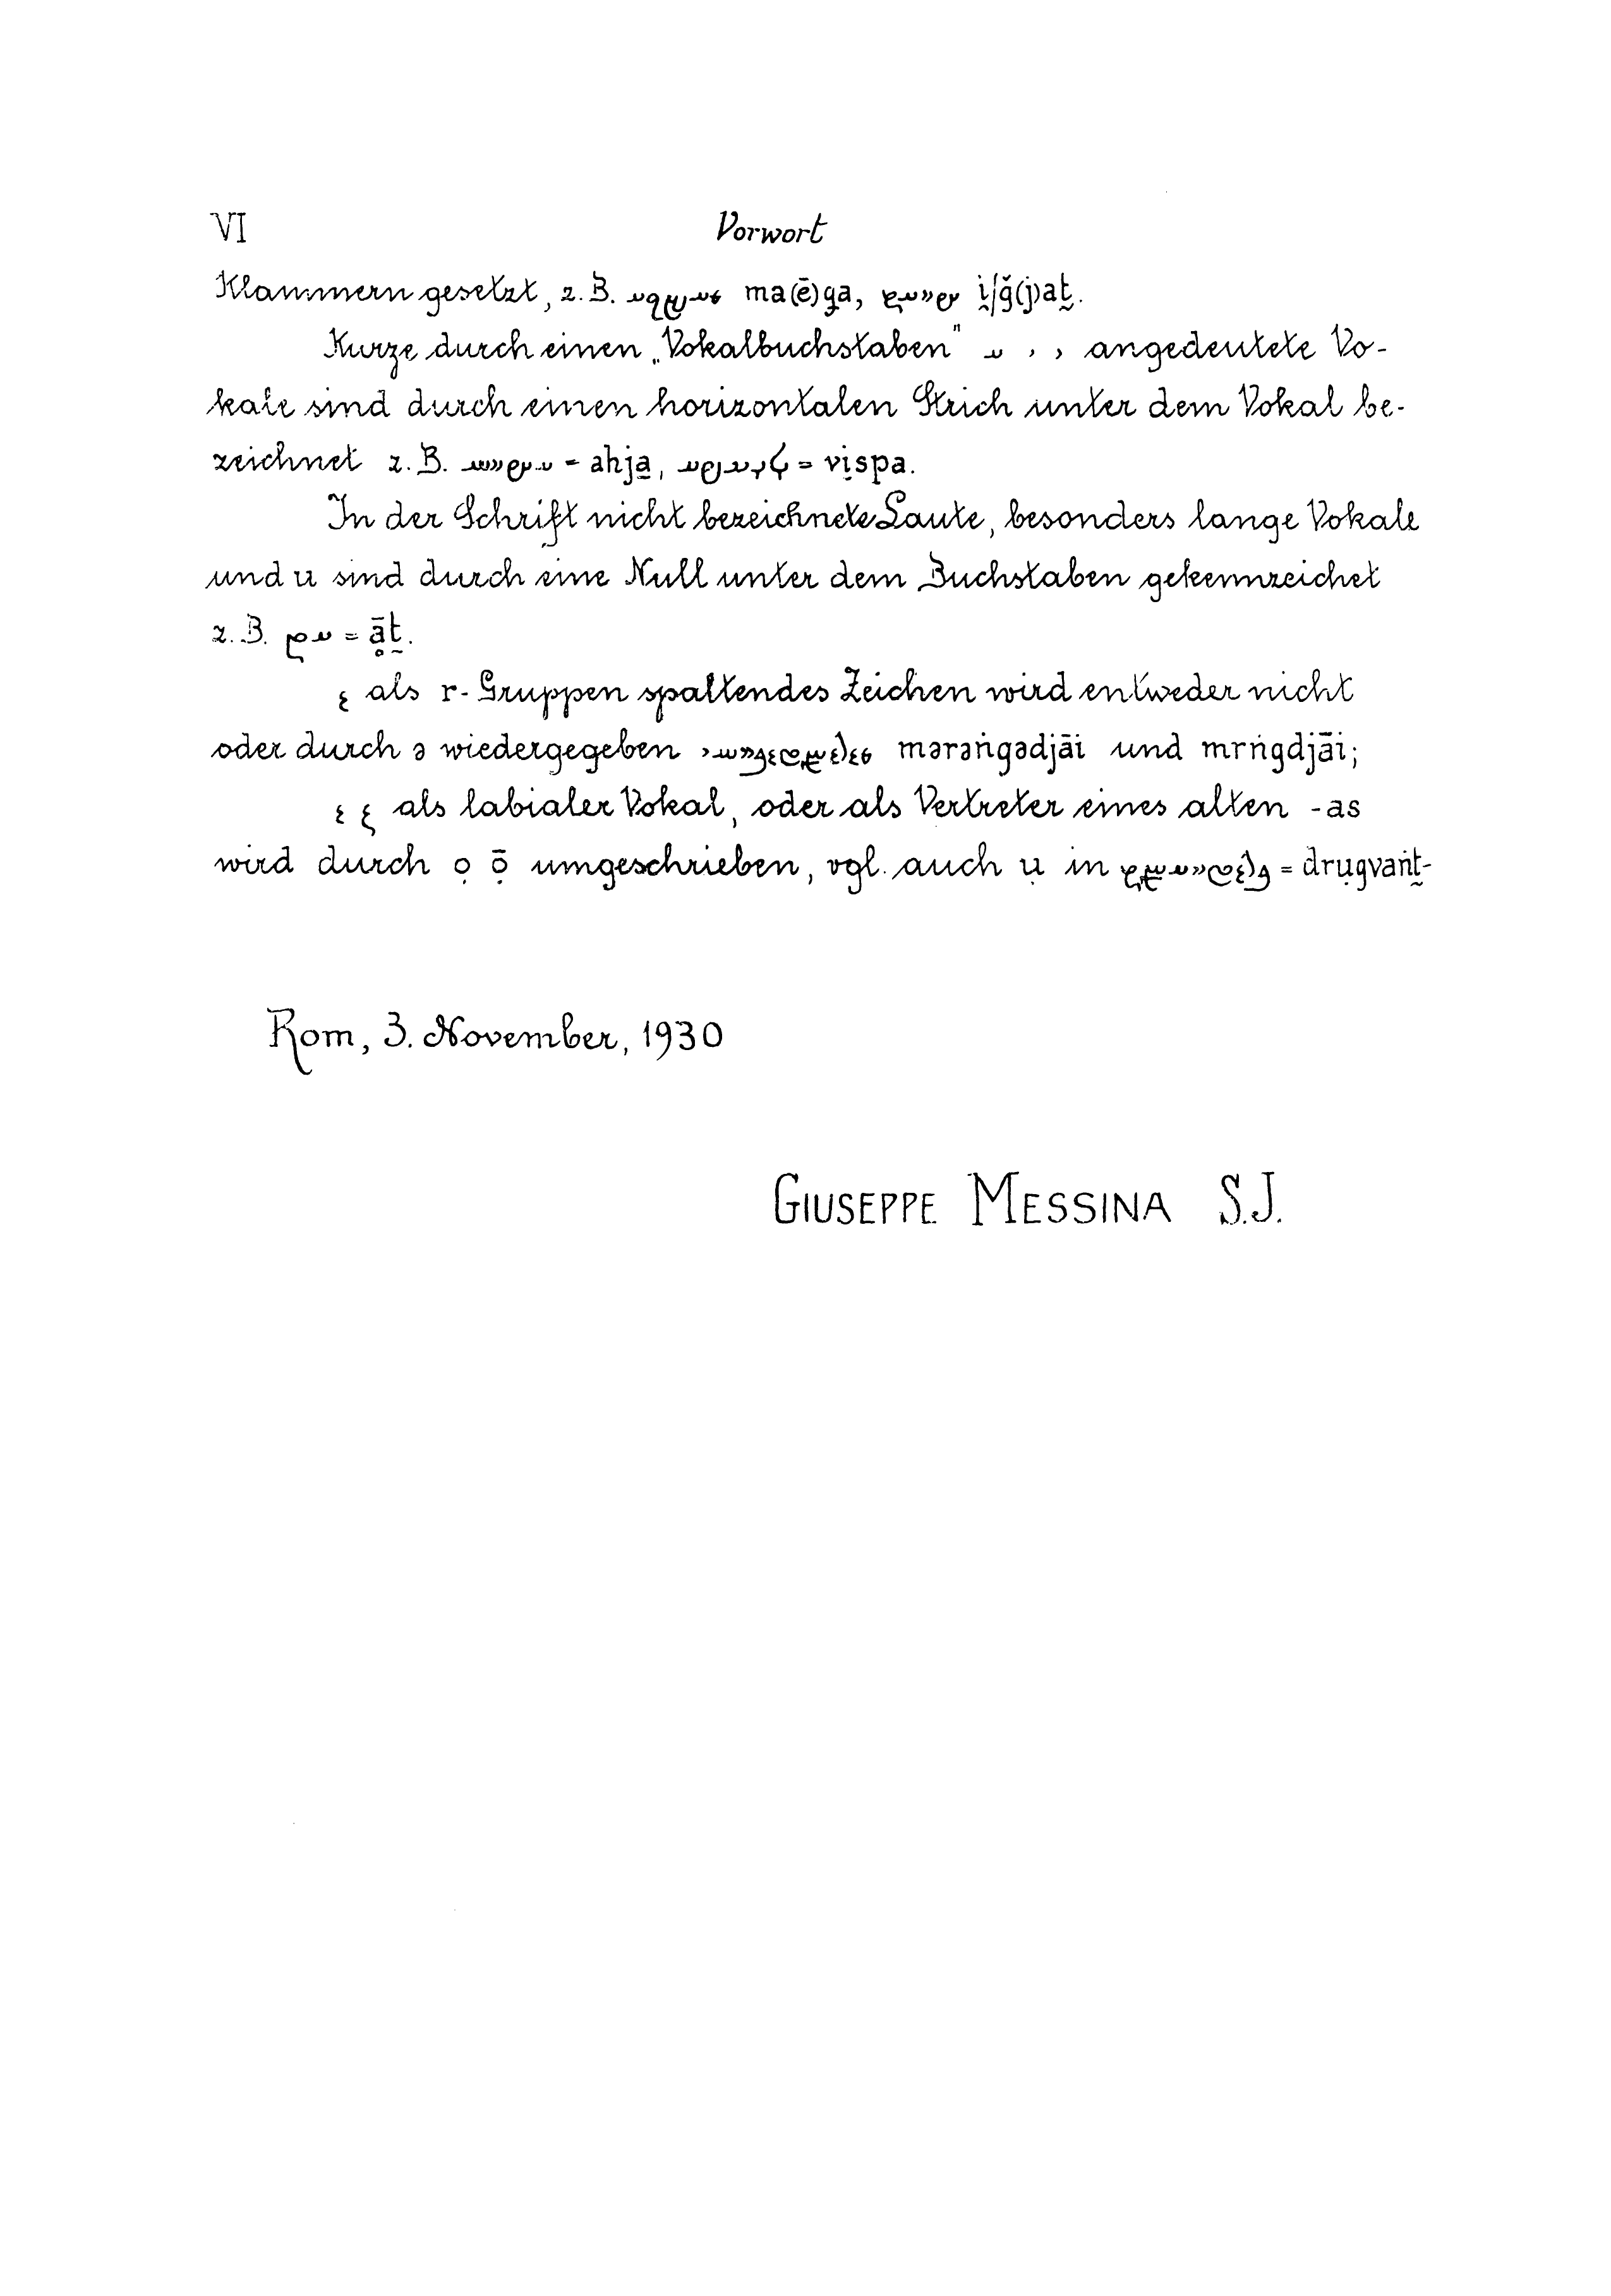 VI Vorwort
Klammern gesetzt, z. B. ma(ē)ga, 
Kurze durch einen „Vokalbuchstaben" angedeutete Vo-
kale sind durch einen horizontalen Strich unter dem Vokal be-
zeichnet z. B. = ahja̱, = vi̱spa.
In der Schrift nicht bezeichnete Laute, besonders lange Vokale
und u sind durch eine Null unter dem Buchstaben gekennzeichet
z. B. 𐬀𐬝 = ḁ̄t̰.
𐬆 als r-Gruppen spaltendes Zeichen wird entweder nicht
oder durch ə wiedergegeben mərəṅgədjāi und mrṅgdjāi;
𐬆 𐬇 als labialer Vokal, oder als Vertreter eines alten -as
wird durch ọ ọ̄ umgeschrieben, vgl. auch ụ in = drụgvaṅt̰-
Rom, 3. November, 1930
GIUSEPPE MESSINA S.J.